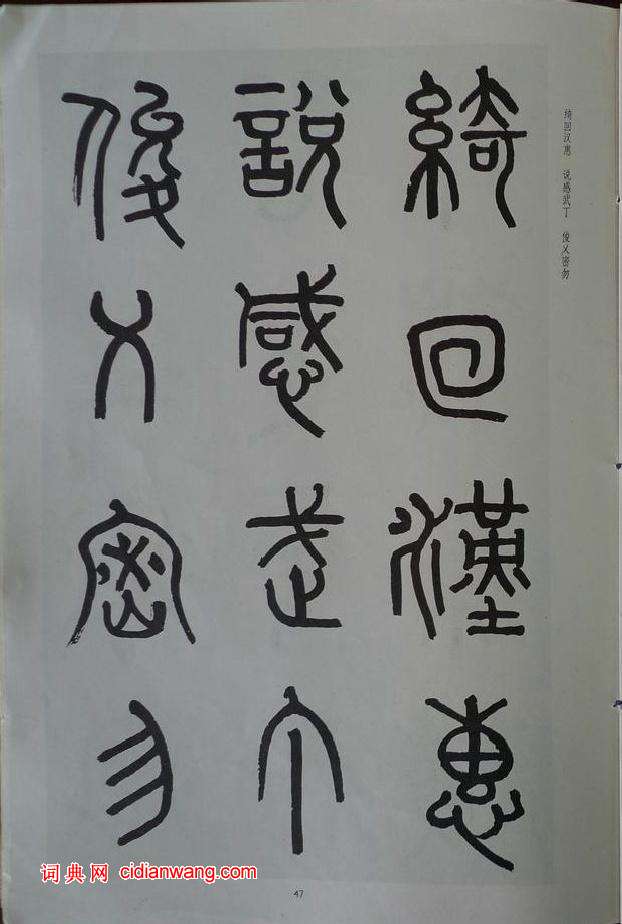 绮回汉惠 说感武丁 俊乂密勿
綺回漢惠
說感武丁
俊乂密勿
词典网 cidianwang.com
47